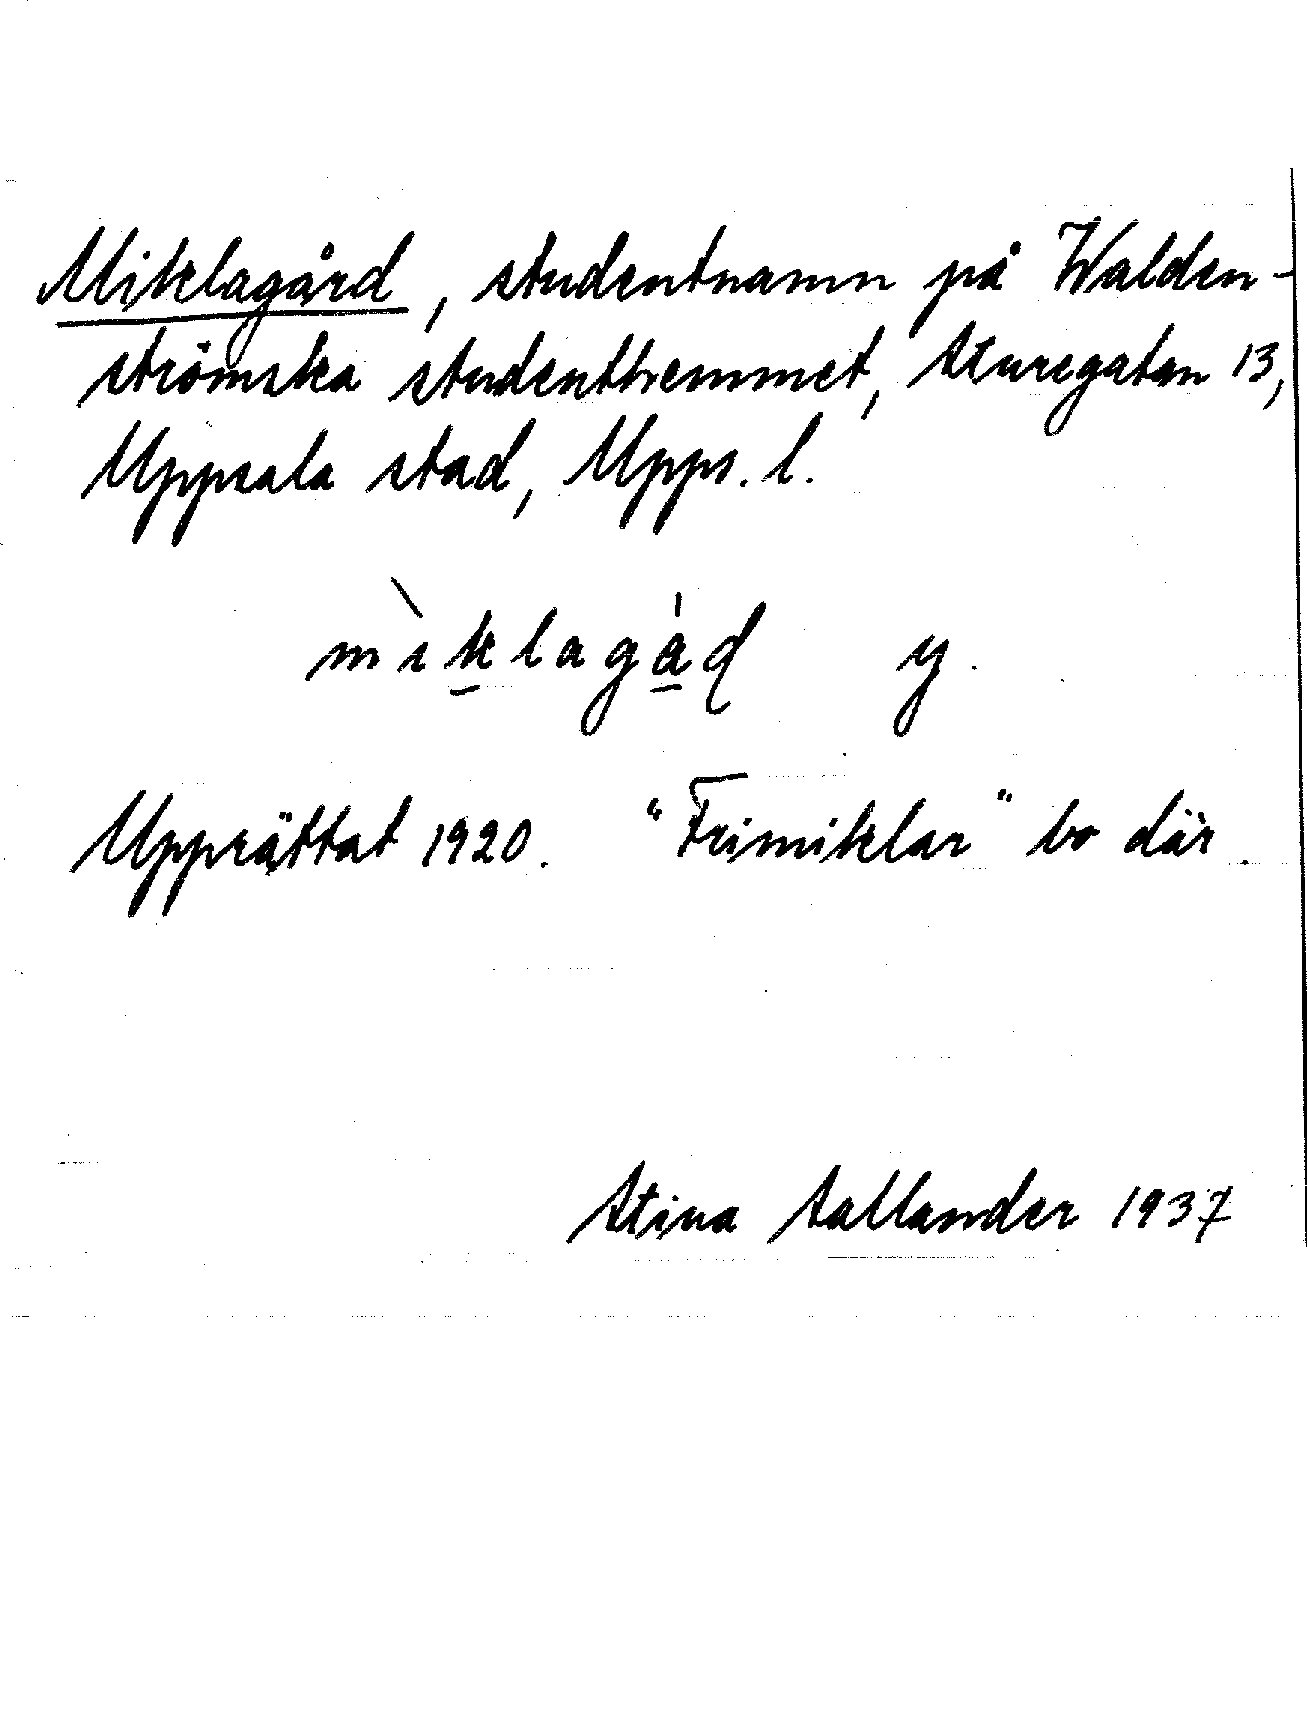 Miklagård, studentnamn på Walden-
strömska studenthemmet, Sturegatan 13,
Uppsala stad, Upps. l.
mìklagåd y.
Upprättat 1920. "Frimiklar" bo där.
Stina Sallander 1937